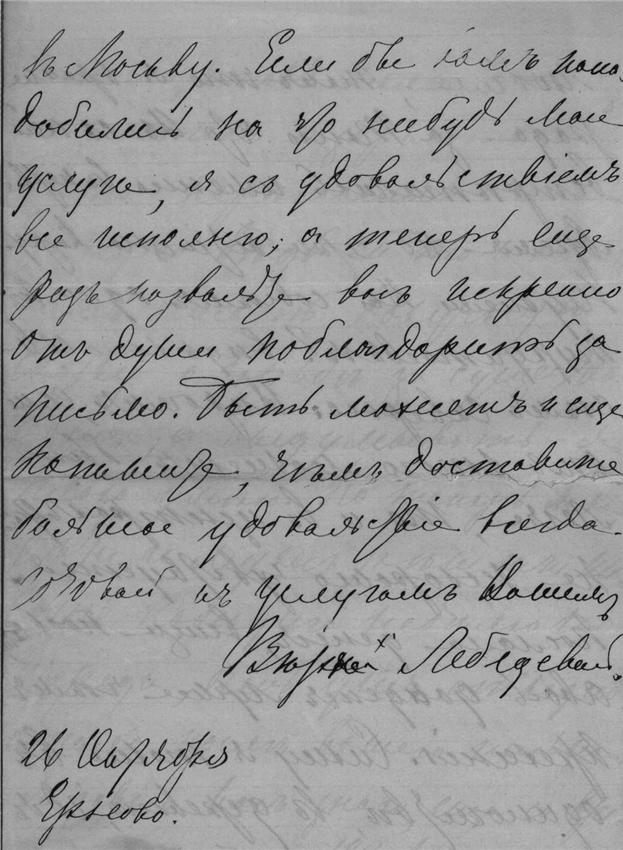 въ Москву. Если бы вамъ пона-
добились на что нибудь мои
услуги, я съ удовольствіемъ
все исполню; а теперь еще
разъ позвольте васъ искренно
отъ души поблагодарить за
письмо. Быть можетъ и еще
напишите, чѣмъ доставите
большое удовольствіе всегда
готовой къ услугамъ Вашимъ
Лебедевой.
26 Октября
Ершово.